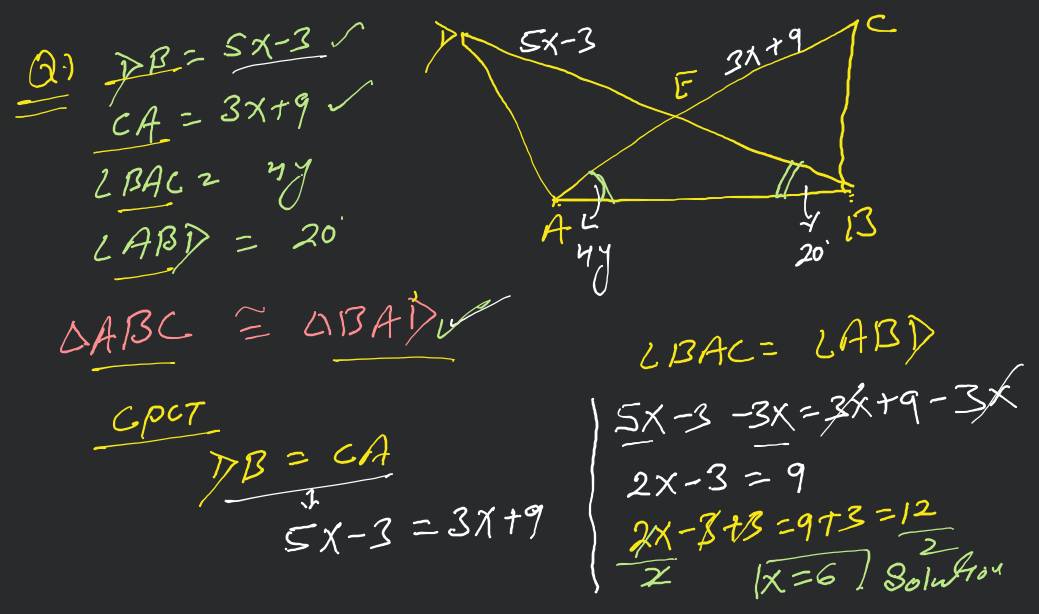 Q:) DB = 5x-3 ✓
CA = 3x+9 ✓
∠BAC = 4y
∠ABD = 20°
△ABC ≅ △BAD ✓
CPCT
DB = CA
5x-3 = 3x+9
D
5x-3
E
3x+9
C
A
4y
20°
B
∠BAC = ∠ABD
5x-3 -3x = 3x+9-3x
2x-3 = 9
2x-3+3 = 9+3 = 12
2 2
x=6 Solution